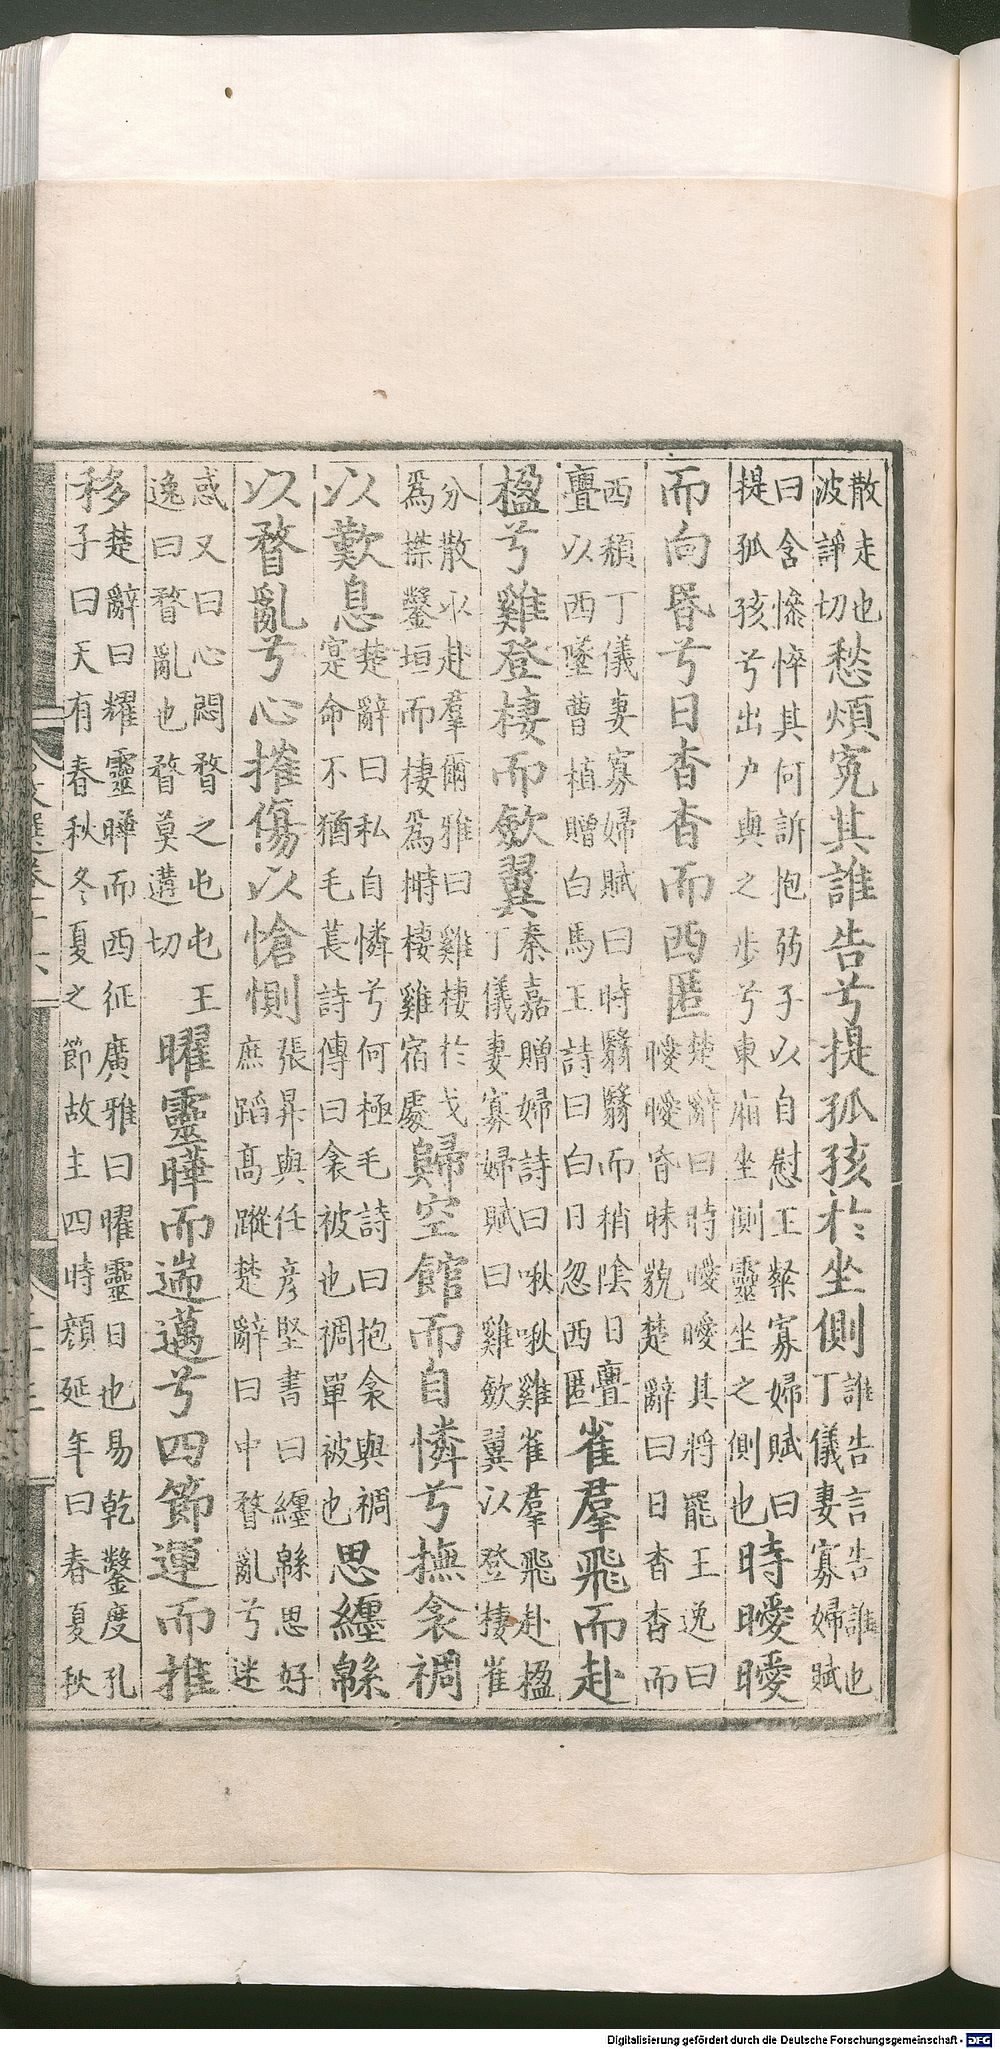 散走也波諍切愁煩冤其誰告兮提孤孩於坐側誰告言告誰也丁儀妻寡婦賦
曰含慘悴其何訴抱弱子以自慰王粲寡婦賦曰提孤孩兮出户與之步兮東廂坐側靈坐之側也時曖曖
而向昏兮日杳杳而西匿楚辭曰時曖曖其將罷王逸曰曖曖昏昧貌楚辭曰日杳杳而
西頹丁儀妻寡婦賦曰時翳翳而稍陰日亹亹以西墜曹植贈白馬王詩曰白日忽西匿雀羣飛而赴
楹兮雞登棲而斂翼秦嘉贈婦詩曰啾啾雞雀羣飛赴楹丁儀妻寡婦賦曰雞斂翼以登棲雀
分散以赴羣爾雅曰雞棲於弋爲榤鑿垣而棲爲塒棲雞宿處歸空館而自憐兮撫衾裯
以歎息楚辭曰私自憐兮何極毛詩曰抱衾與裯寔命不猶毛萇詩傳曰衾被也裯單被也思纏緜
以瞀亂兮心摧傷以愴惻張昇與任彦堅書曰纏緜思好庶蹈高蹤楚辭曰中瞀亂兮迷
惑又曰心悶瞀之屯屯王逸曰瞀亂也瞀莫遘切曜靈曄而遄邁兮四節運而推
移楚辭曰耀靈曄而西征廣雅曰曜靈日也易乾鑿度孔子曰天有春秋冬夏之節故主四時顔延年曰春夏秋
Digitalisierung gefördert durch die Deutsche Forschungsgemeinschaft - DFG